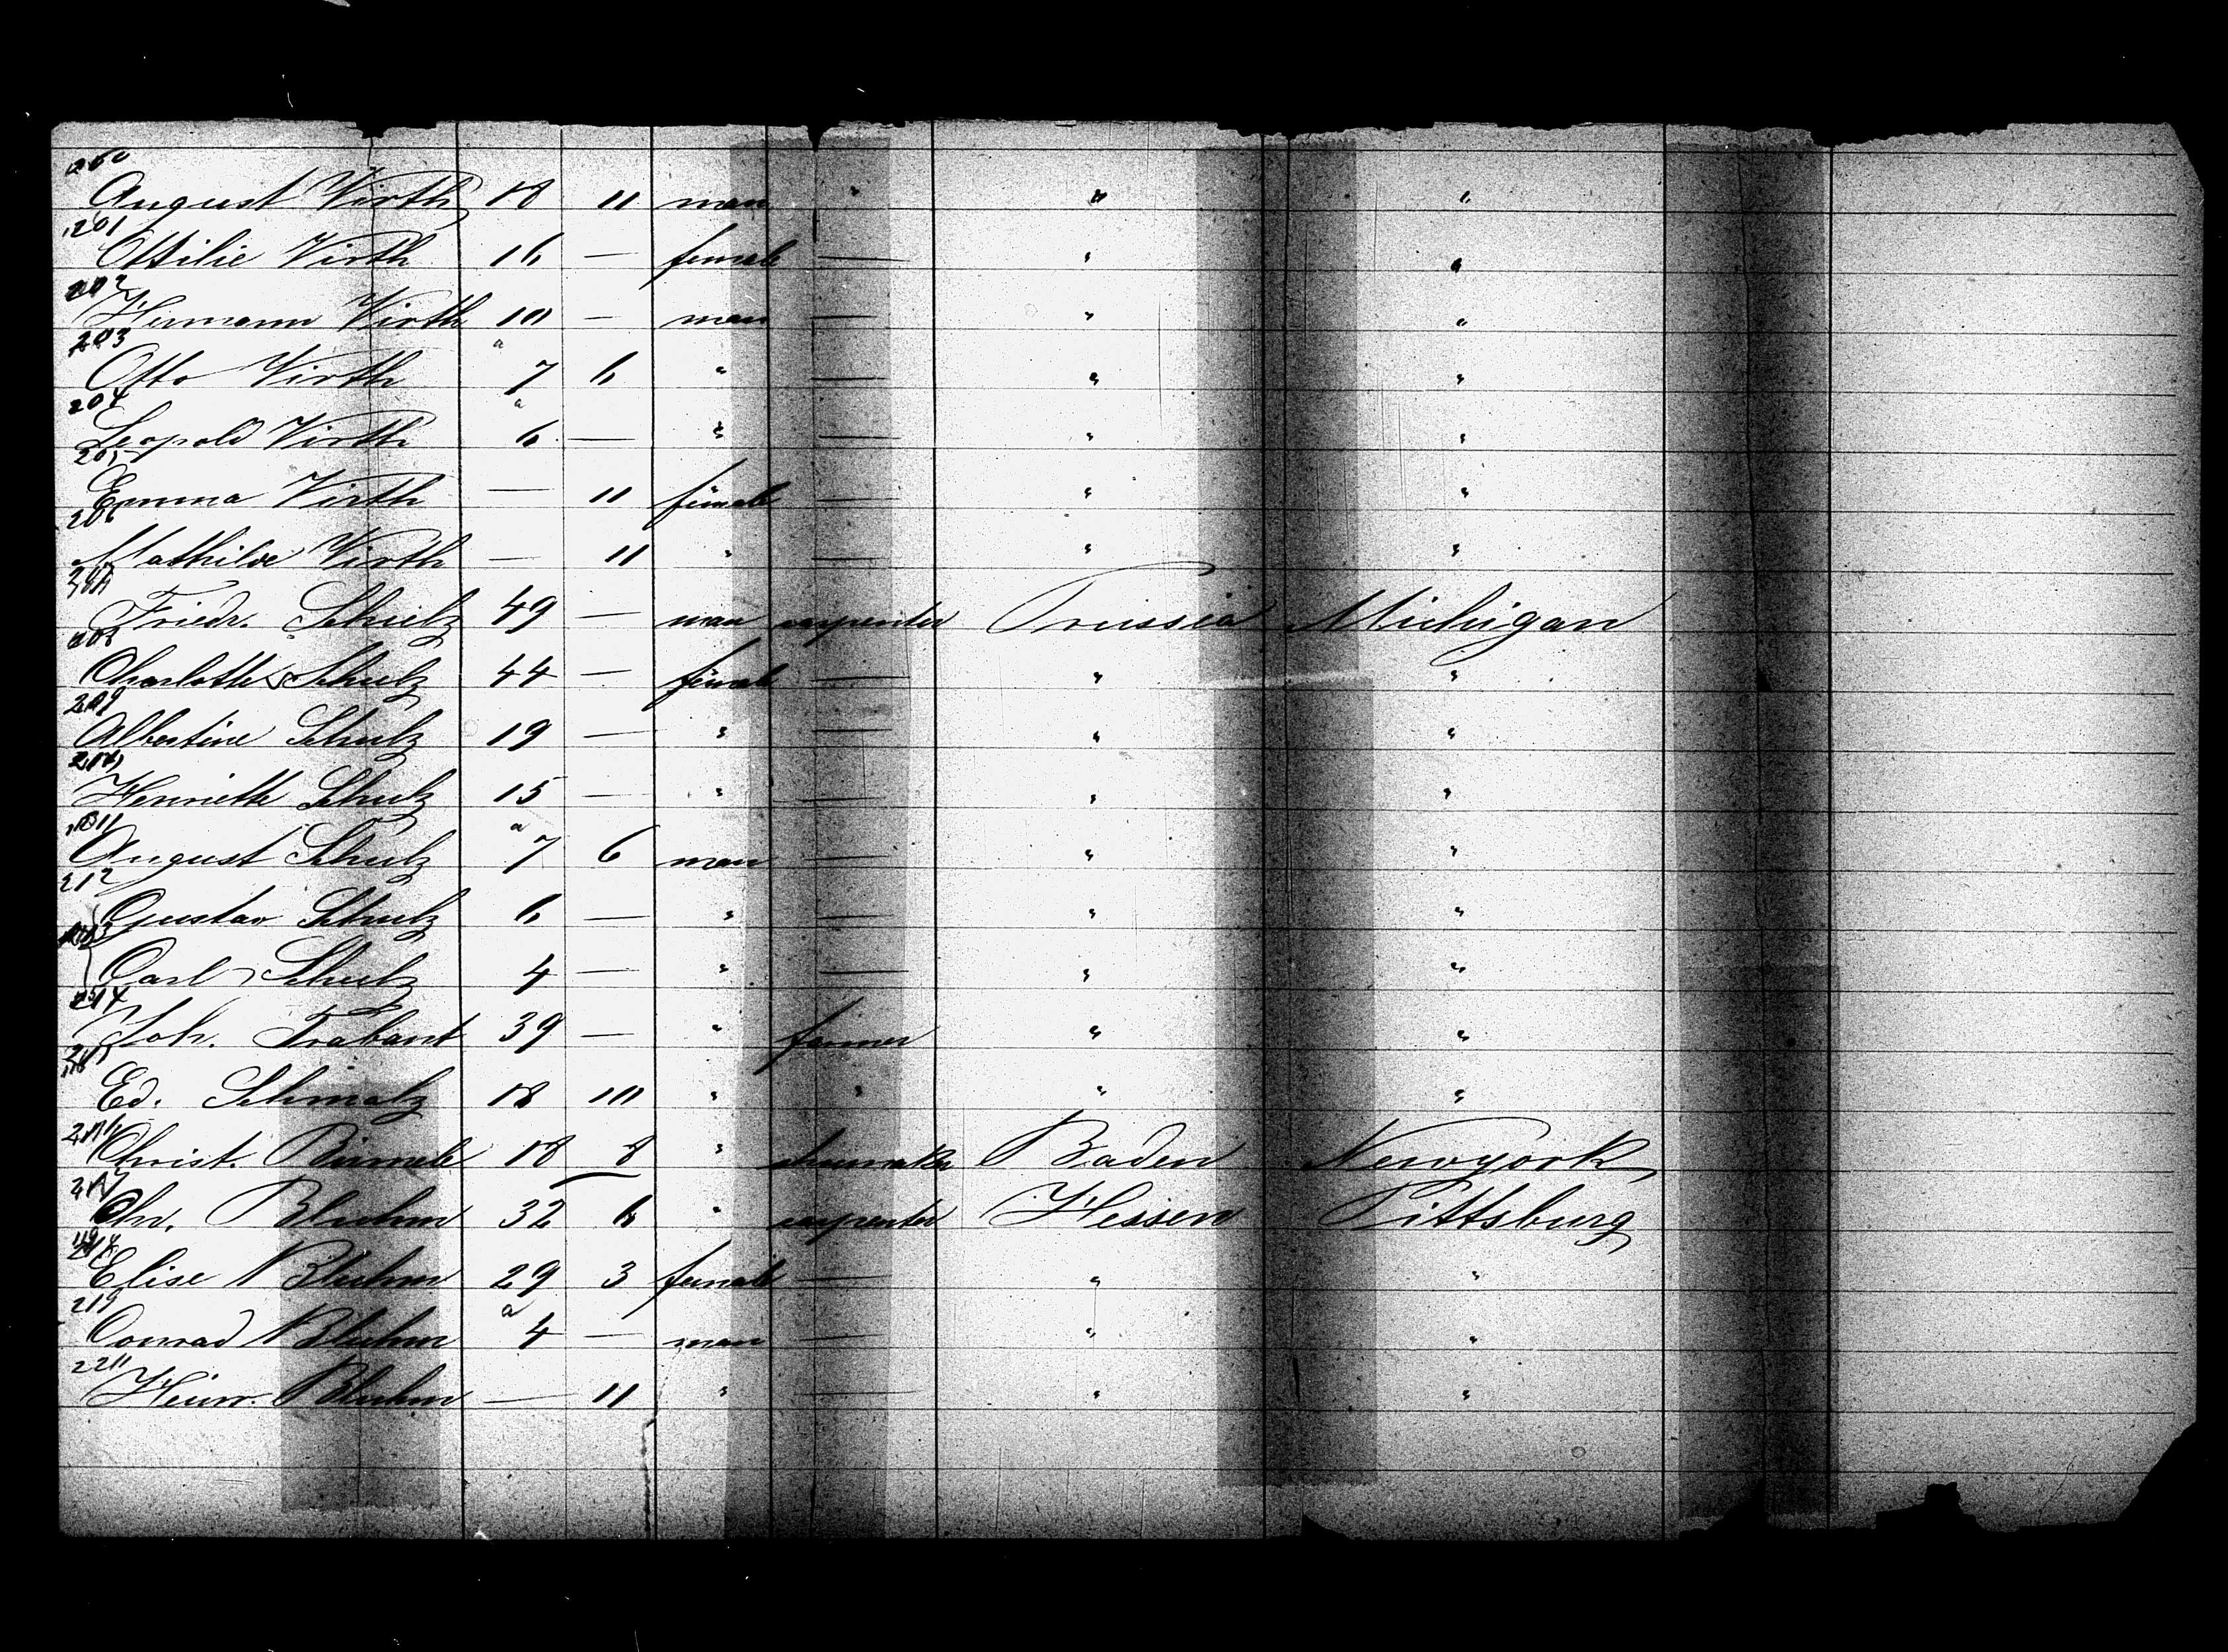 200
August Virth 18 11 man " " "
201
Ottilie Virth 16 — female — " "
202
Hermann Virth 10 — man — " "
203
Otto Virth 7 6 " — " "
204
Leopold Virth 6 — " — " "
205
Emma Virth — 11 female — " "
206
Mathilde Virth — 11 " — " "
207
Friedr. Schulz 49 — man carpenter Prussia Michigan
208
Charlotte Schulz 44 — female — " "
209
Albertine Schulz 19 — " — " "
210
Henriette Schulz 15 — " — " "
211
August Schulz 7 6 man — " "
212
Gustav Schulz 6 — " — " "
213
Carl Schulz 4 — " — " "
214
Joh. Trabant 39 — " farmer " "
215
Ed. Schmalz 18 10 " " " "
216
Christ. 18 8 " shumaker Baden Newyork
217
Chr. Bluhm 32 6 " carpenter Hessen Pittsburg
218
Elise Bluhm 29 3 female — " "
219
Conrad Bluhm 4 — man — " "
220
Heinr. Bluhm — 11 " — " "